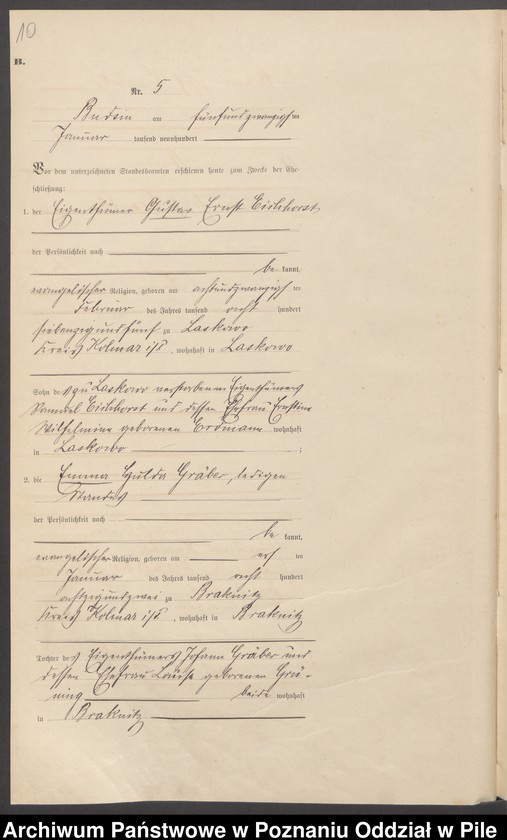 10
B.
Nr. 5
Budsin am fünfundzwanzigsten
Januar tausend neunhundert
Vor dem unterzeichneten Standesbeamten erschienen heute zum Zwecke der Ehe-
schließung:
1. der Eigenthümer Gustav Ernst Eichhorst
der Persönlichkeit nach
be kannt,
evangelischer Religion, geboren am achtundzwanzigsten
Februar des Jahres tausend acht hundert
siebenzig und fünf zu Laskowo
Kreis Kolmar i/P., wohnhaft in Laskowo
Sohn des zu Laskowo verstorbenen Eigenthümers
Samuel Eichhorst und dessen Ehefrau Ernstine
Wilhelmine geborenen Erdmann wohnhaft
in Laskowo ;
2. die Emma Hulda Gräber, ledigen
Standes
der Persönlichkeit nach
be kannt,
evangelischer Religion, geboren am ten
Januar des Jahres tausend acht hundert
achtzig und zwei zu Braknitz
Kreis Kolmar i/P., wohnhaft in Braknitz
Tochter des Eigenthümers Johann Gräber und
dessen Ehefrau Louise geborenen
beide wohnhaft
in Braknitz
Archiwum Państwowe w Poznaniu Oddział w Pile